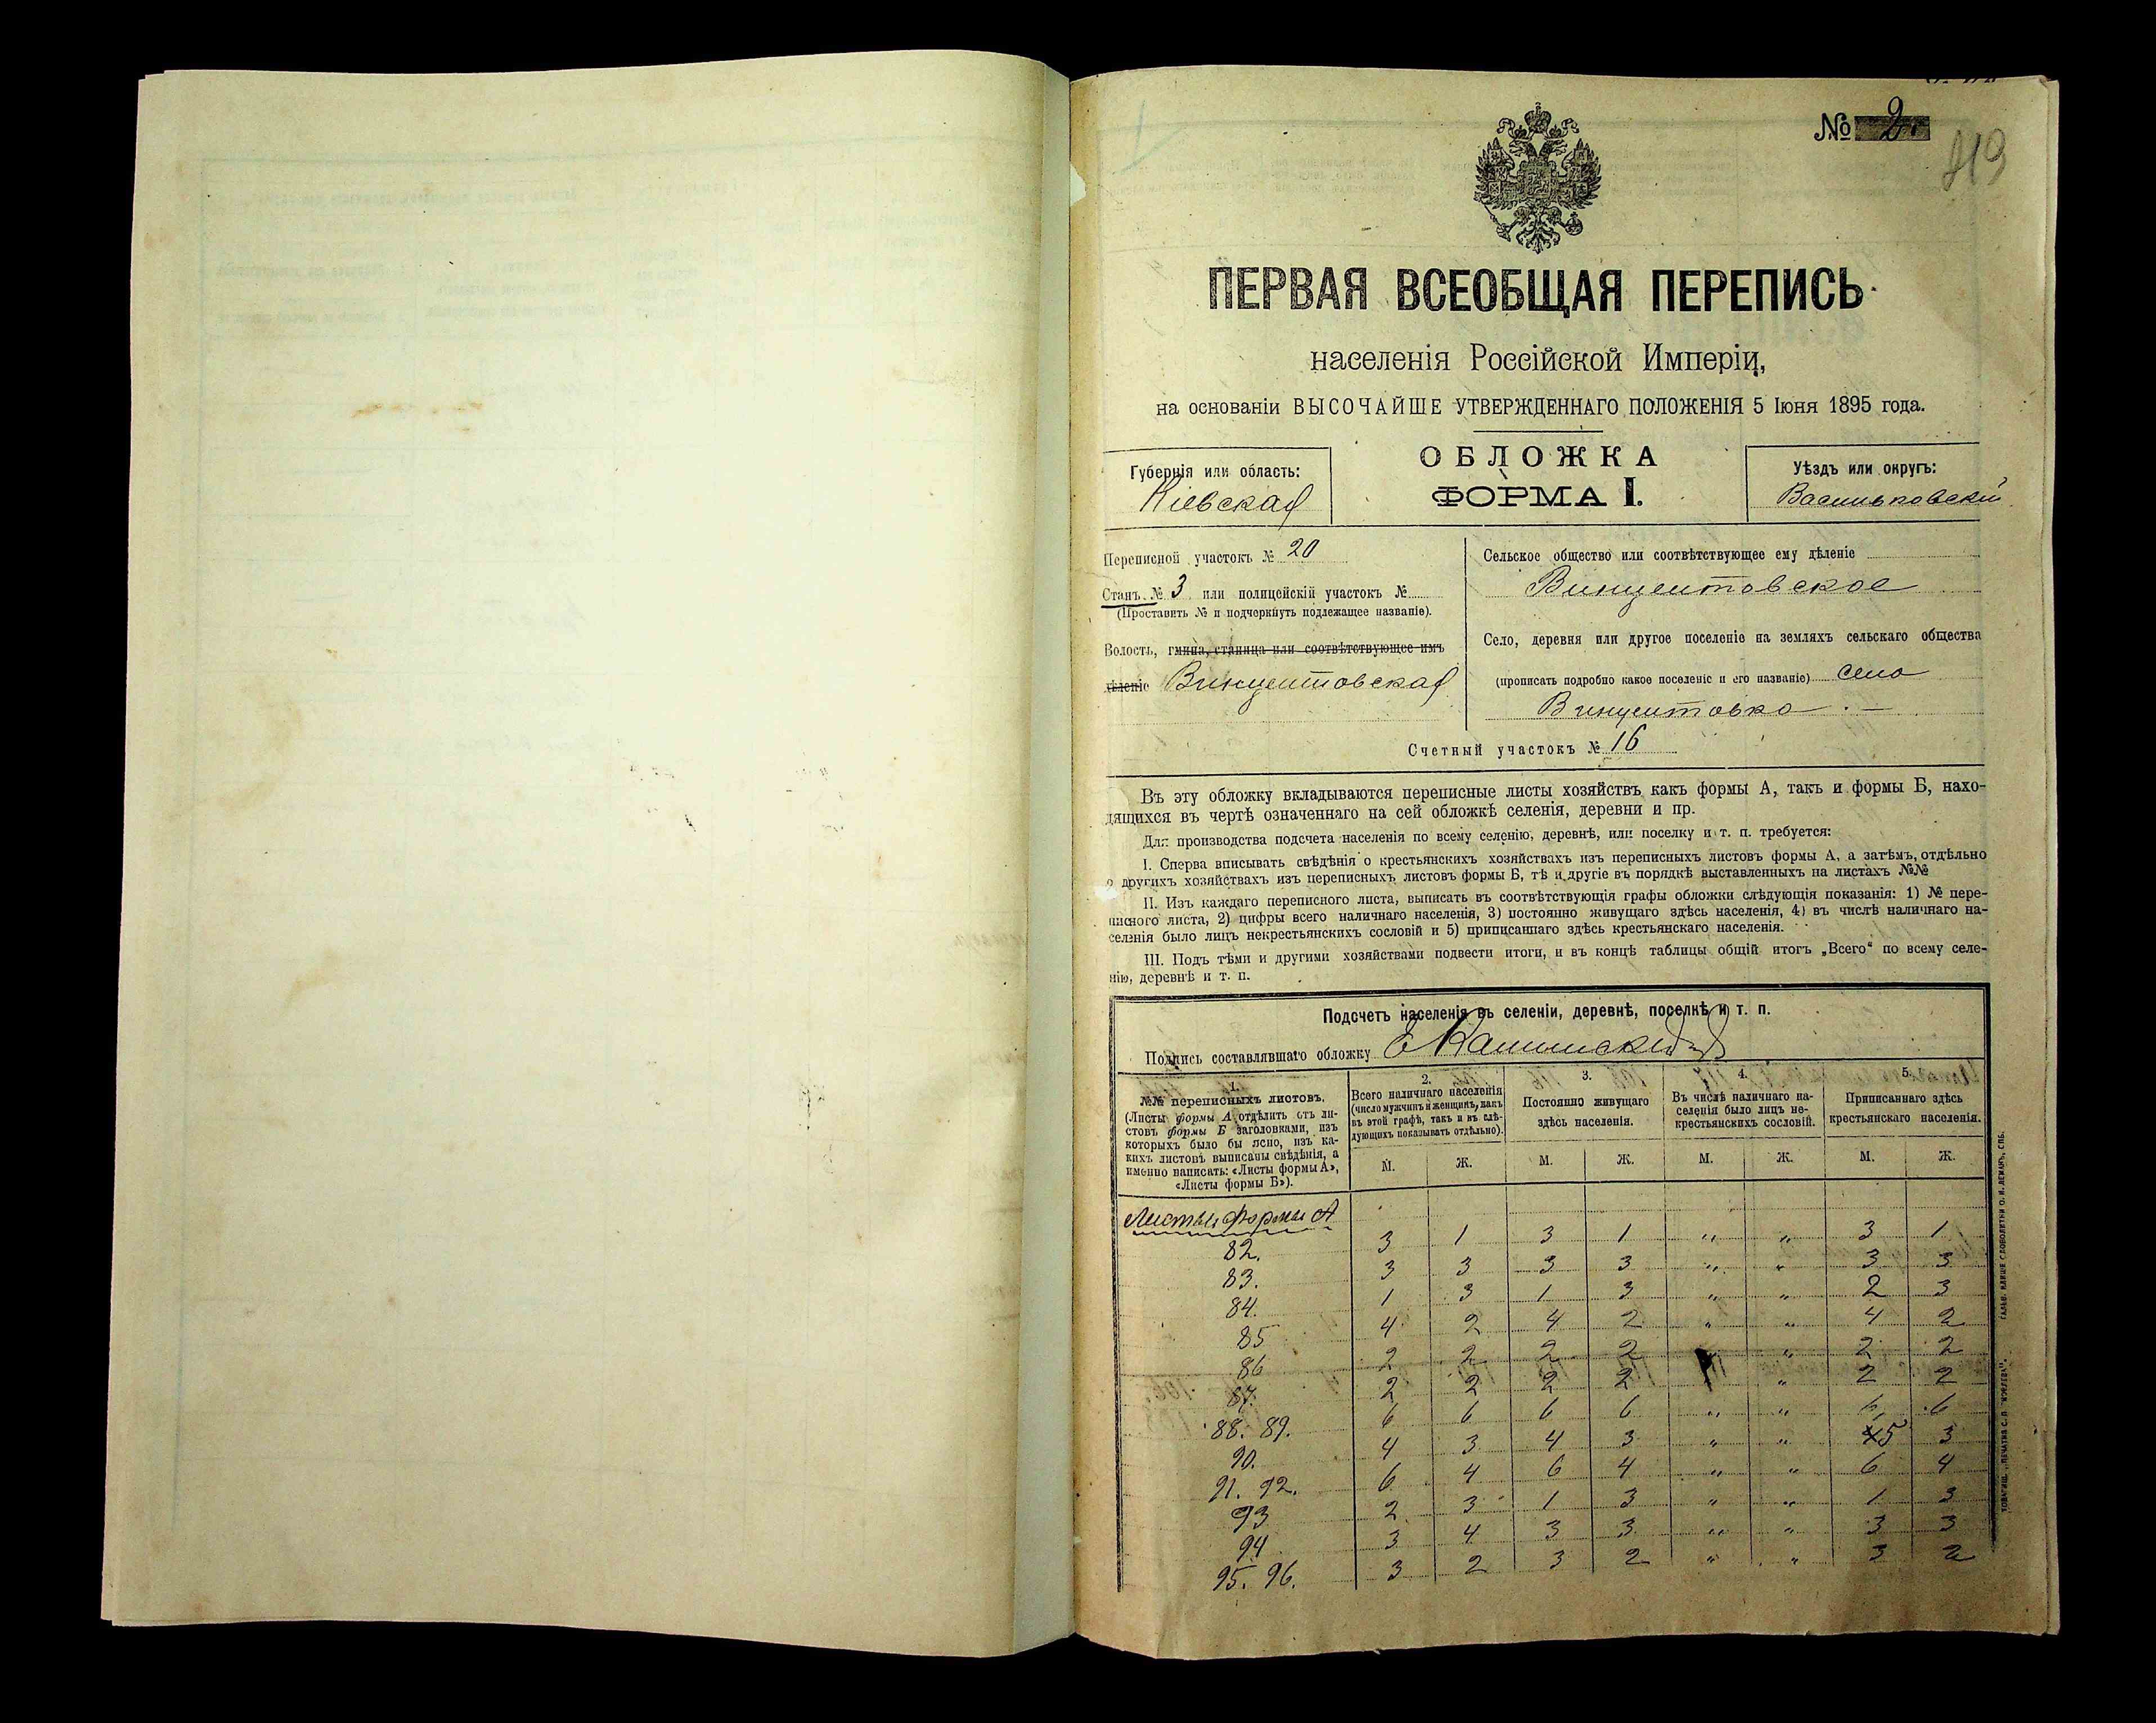 № 2.
419
ПЕРВАЯ ВСЕОБЩАЯ ПЕРЕПИСЬ
населенія Россійской Имперіи,
на основаніи ВЫСОЧАЙШЕ УТВЕРЖДЕННАГО ПОЛОЖЕНІЯ 5 Іюня 1895 года.
ОБЛОЖКА
ФОРМА I.
Губернія или область:
Кіевская
Уѣздъ или округъ:
Васильковскій
Переписной участокъ № 20
Станъ № 3 или полицейскій участокъ №
(Проставить № и подчеркнуть подлежащее названіе).
Волость, гмина, станица или соотвѣтствующее имъ
дѣленіе Винцентовская
Сельское общество или соотвѣтствующее ему дѣленіе
Винцентовское
Село, деревня или другое поселеніе на земляхъ сельскаго общества
(прописать подробно какое поселеніе и его названіе) село
Винцентовка. —
Счетный участокъ № 16
Въ эту обложку вкладываются переписные листы хозяйствъ какъ формы А, такъ и формы Б, нахо-
дящихся въ чертѣ означеннаго на сей обложкѣ селенія, деревни и пр.
Для производства подсчета населенія по всему селенію, деревнѣ, или поселку и т. п. требуется:
I. Сперва вписывать свѣдѣнія о крестьянскихъ хозяйствахъ изъ переписныхъ листовъ формы А, а затѣмъ, отдѣльно
о другихъ хозяйствахъ изъ переписныхъ листовъ формы Б, тѣ и другіе въ порядкѣ выставленныхъ на листахъ №№
II. Изъ каждаго переписного листа, выписать въ соотвѣтствующія графы обложки слѣдующія показанія: 1) № пере-
писного листа, 2) цифры всего наличнаго населенія, 3) постоянно живущаго здѣсь населенія, 4) въ числѣ наличнаго на-
селенія было лицъ некрестьянскихъ сословій и 5) приписаннаго здѣсь крестьянскаго населенія.
III. Подъ тѣми и другими хозяйствами подвести итоги, и въ концѣ таблицы общій итогъ „Всего“ по всему селе-
нію, деревнѣ и т. п.
Подсчетъ населенія въ селеніи, деревнѣ, поселкѣ и т. п.
Подпись составлявшаго обложку
1.
№№ переписныхъ листовъ.
(Листы формы А отдѣлить отъ ли-
стовъ формы Б заголовками, изъ
которыхъ было бы ясно, изъ ка-
кихъ листовъ выписаны свѣдѣнія, а
именно написать: «Листы формы А»,
«Листы формы Б»).
2.
Всего наличнаго населенія
(число мужчинъ и женщинъ, какъ
въ этой графѣ, такъ и въ слѣ-
дующихъ показывать отдѣльно).
3.
Постоянно живущаго
здѣсь населенія.
4.
Въ числѣ наличнаго на-
селенія было лицъ не-
крестьянскихъ сословій.
5.
Приписаннаго здѣсь
крестьянскаго населенія.
М. Ж. М. Ж. М. Ж. М. Ж.
Листы формы А
82. 3 1 3 1 „ „ 3 1
83. 3 3 3 3 „ „ 3 3
84. 1 3 1 3 „ „ 2 3
85 4 2 4 2 „ „ 4 2
86 2 2 2 2 „ 2 2
87. 2 2 2 2 „ 2 2
88. 89. 6 6 6 6 „ „ 6 6
90. 4 3 4 3 „ „ 5 3
91. 92. 6 4 6 4 „ „ 6 4
93 2 3 1 3 „ „ 1 3
94 3 4 3 3 „ „ 3 3
95. 96. 3 2 3 2 „ „ 3 2